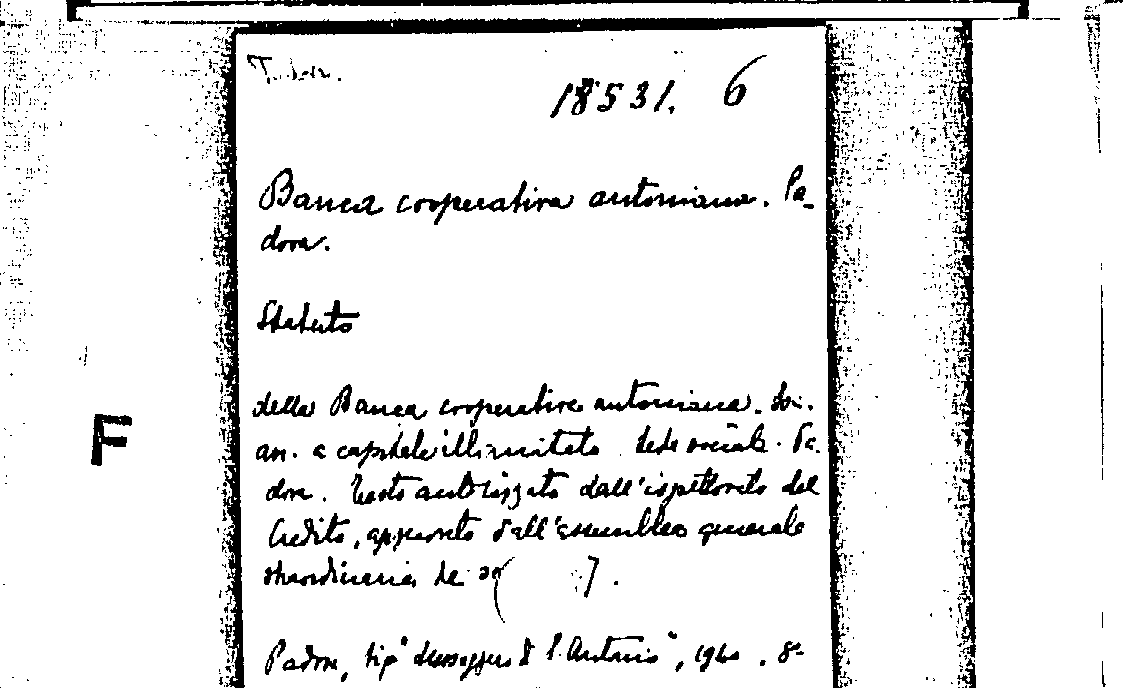 18531. 6
Banca cooperativa antoniana. Pa-
dova.
Statuto
F
della Banca cooperativa antoniana. Soc.
an. a capitale illimitato sede sociale. Pa.
dova. Testo autorizzato dall'ispettorato del
Credito, approvato dall'assemblea generale
straordinaria
Padova, tip "Messaggero di S. Antonio", 1940, 8º